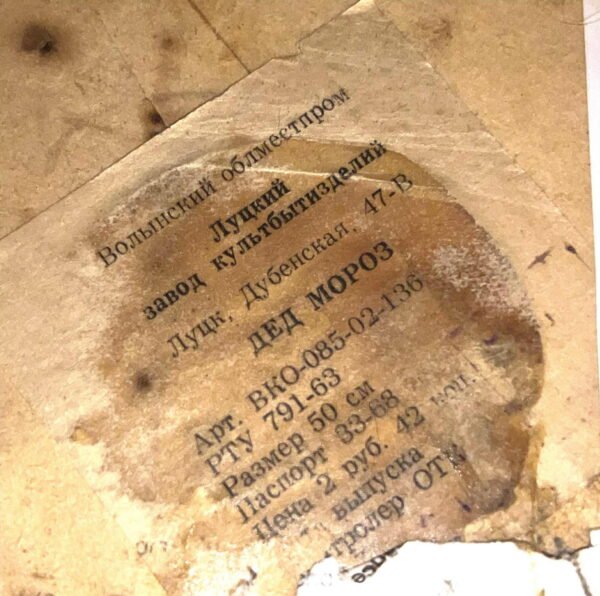 Волынский облместпром
Луцкий
завод культбытизделий
Луцк, Дубенская, 47-В
ДЕД МОРОЗ
Арт. ВКО-085-02-136
РТУ 791-63
Размер 50 см
Паспорт 33-68
Цена 2 руб. 42 коп.
выпуска